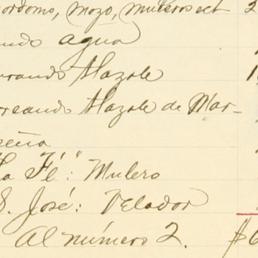 ordomo, mozo, muleros ect 2
ando agua
rrando Hazole
rreando Hazole de Mar-
eña
ta Fé": Mulero
S. José: Velador
Al número 2. $6